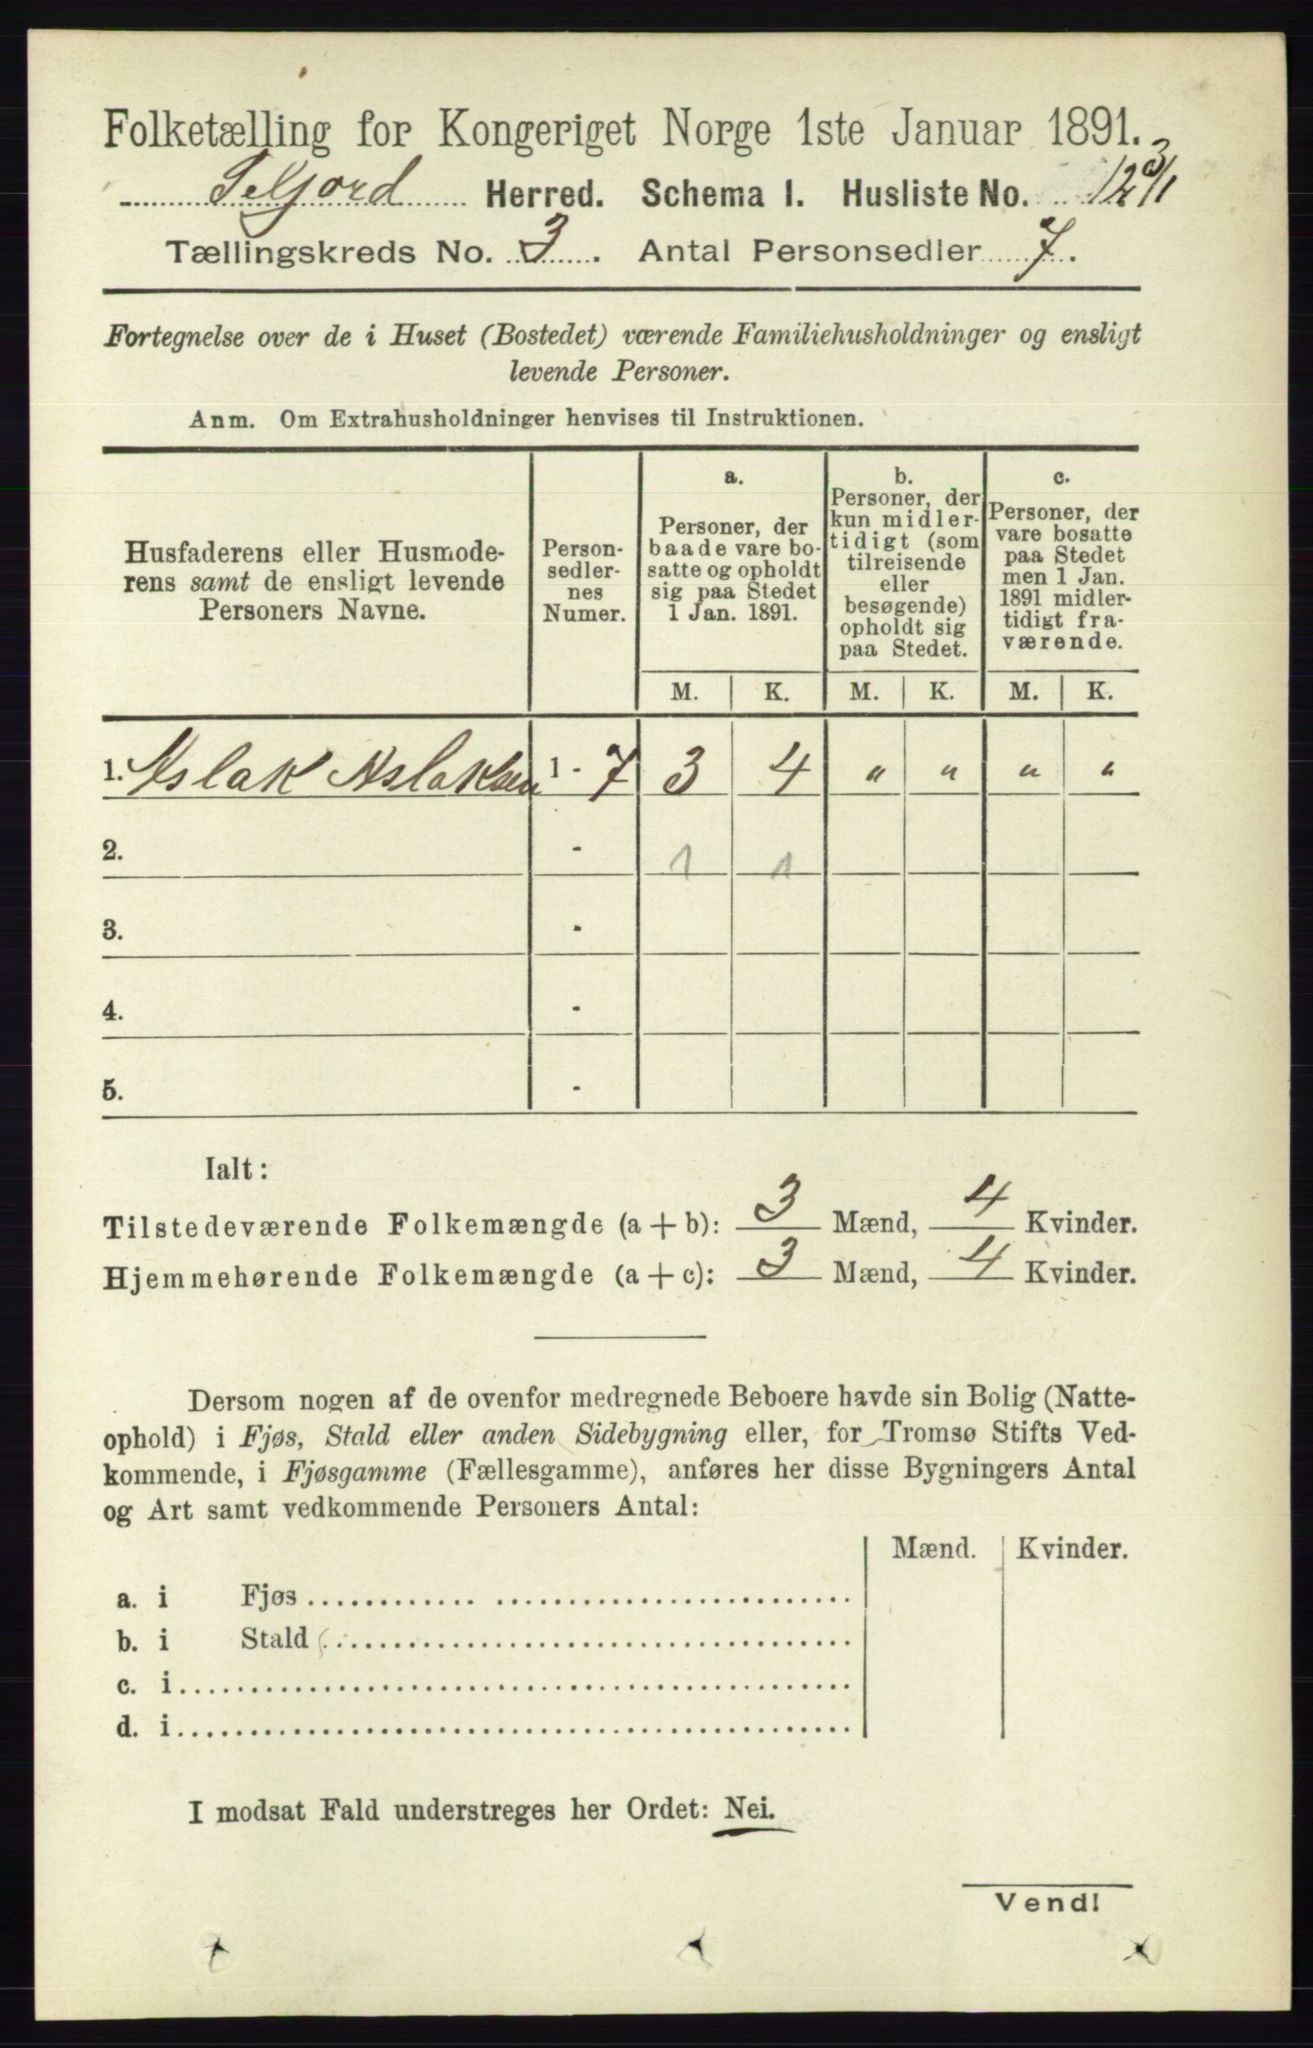 Folketælling for Kongeriget Norge 1ste Januar 1891.
Seljord Herred. Schema I. Husliste No.
Tællingskreds No. 3. Antal Personsedler 7.
Fortegnelse over de i Huset (Bostedet) værende Familiehusholdninger og ensligt
levende Personer.
Anm. Om Extrahusholdninger henvises til Instruktionen.
Husfaderens eller Husmode-
rens samt de ensligt levende
Personers Navne.
Person-
sedler-
nes
Numer.
a.
Personer, der
baade vare bo-
satte og opholdt
sig paa Stedet
1 Jan. 1891.
b.
Personer, der
kun midler-
tidigt (som
tilreisende
eller
besøgende)
opholdt sig
paa Stedet.
c.
Personer, der
vare bosatte
paa Stedet
men 1 Jan.
1891 midler-
tidigt fra-
værende.
M. K. M. K. M. K.
1. Aslak Aslaksen 1 - 7 3 4 " " " "
2. - 1 1
3. -
4. -
5. -
Ialt:
Tilstedeværende Folkemængde (a + b): 3 Mænd, 4 Kvinder.
Hjemmehørende Folkemængde (a + c): 3 Mænd, 4 Kvinder.
Dersom nogen af de ovenfor medregnede Beboere havde sin Bolig (Natte-
ophold) i Fjøs, Stald eller anden Sidebygning eller, for Tromsø Stifts Ved-
kommende, i Fjøsgamme (Fællesgamme), anføres her disse Bygningers Antal
og Art samt vedkommende Personers Antal:
Mænd. Kvinder.
a. i Fjøs
b. i Stald
c. i
d. i
I modsat Fald understreges her Ordet: Nei.
Vend!